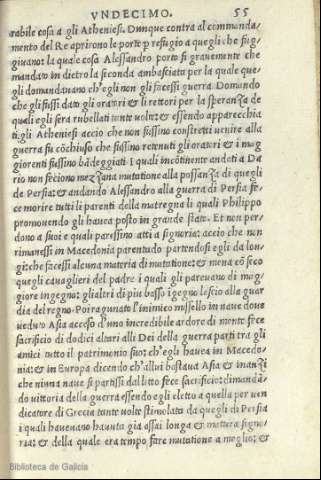 VNDECIMO. 55
rabile cosa a gli Atheniesi. Dunque contra al commanda,
mento del Re aprirono le porte p refugio a quegli che fug,
giuano: la quale cosa Alessandro porto si grauemente che
mandato in dietro la seconda ambasciata per la quale que,
gli domandauano ch'egli non gli facessi guerra. Domando
che gli fussi dato gli oratori & li rettori per la speranza de
quali egli sera rubellati tante volte: & essendo apparecchia
ti gli Atheniesi accio che non fussino constretti venire alla
guerra fu cõchiuso che fussino retenuti gli oratori & i mag
giorenti fussino bãdeggiati I quali incõtinente andati a Da
rio non feciono mezzana mutatione alla possanza di quegli
de Persia: & andando Alessandro alla guerra di Persia fe,
ce morire tutti li parenti della matregna li quali Philippo
promouendo gli hauea posto in grande stato. Et non per,
dono a suoi e quali paressino atti a signoria: accio che non
rimanessi in Macedonia parentado partendosi egli da lon,
gi: che facessi alcuna materia di mutatione: & mena cõ seco
quegli cauaglieri del padre i quali gli pareuano di mag,
giore ingegno: gli altri di piu basso igegno lescio alla guar
dia del regno. Poi ragunato l'inimico missello in naue doue
veduto Asia acceso d'uno incredibile ardore di mente fece
sacrificio di dodici altari alli Dei della guerra parti tra gli
amici tutto il patrimonio suo: ch'egli hauea in Macedo,
nia: & in Europa dicendo ch'allui bastaua Asia & inanzi
che niuna naue si partissi dal litto fece sacrificio: dimanda,
do vittoria della guerra essendo egli eletto a quella per ven
dicatore di Grecia tante volte stimolata da quegli di Persia
i quali haueuano hauuta gia assai longa & matura signo,
ria: & della quale era tempo fare mutatione a meglio: &
Biblioteca de Galicia